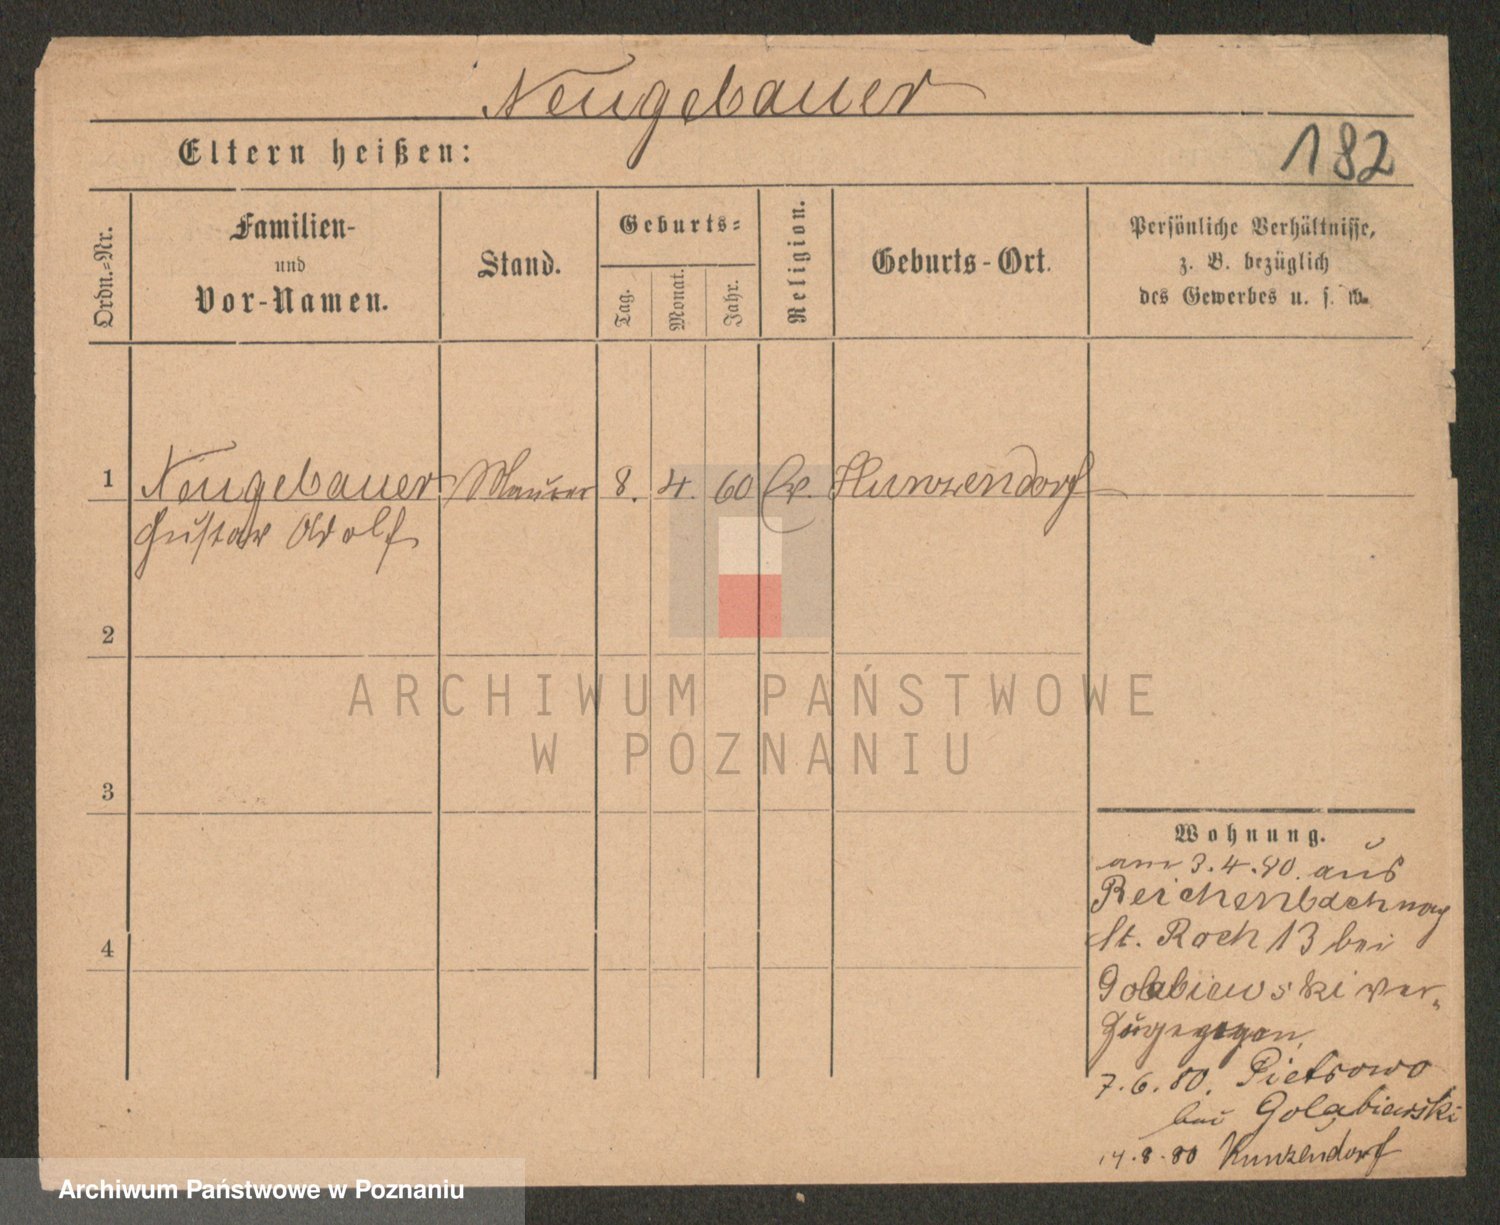 Neugebauer
Eltern heißen:
182
Ordn.-Nr.
Familien-
und
Vor-Namen.
Stand.
Geburts-
Tag.
Monat.
Jahr.
Religion.
Geburts-Ort.
Persönliche Verhältnisse,
z. B. bezüglich
des Gewerbes u. s. w.
1
Neugebauer Maurer 8. 4. 60 Ev. Kunzendorf
Gustav Adolf
2
ARCHIWUM PAŃSTWOWE
W POZNANIU
3
Wohnung.
am 3.4.80. aus
Reichenbach nach
St. Roch 13 bei
Golabiewski
7.6.80. Pietrowo
bei Golabiewski
14.8.80 Kunzendorf
4
Archiwum Państwowe w Poznaniu